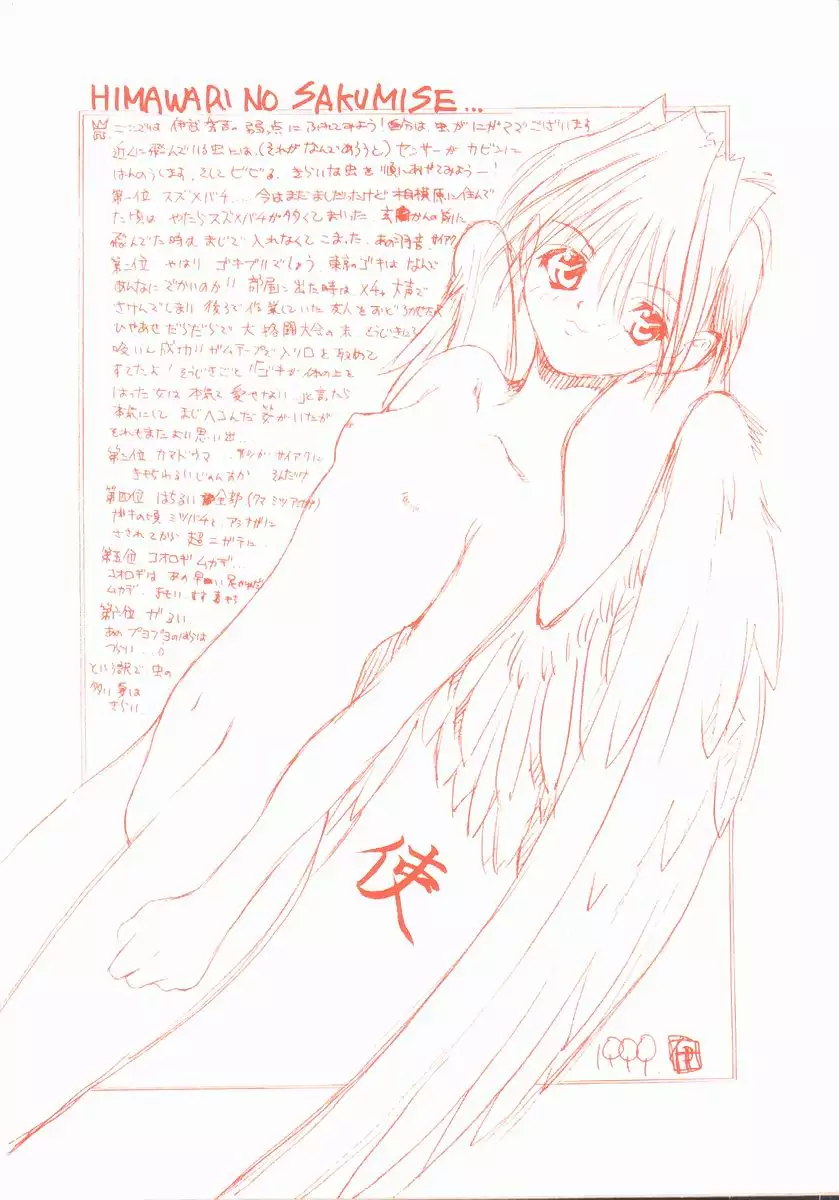 HIMAWARI NO SAKUMISE...
ここでは 伊武秀吉の弱点にふれてみよう!自分は、虫がにがてでございます
近くに飛んでいる虫には、(それがなんであろうと)センサーが カビンに
はんのうします。そして ビビる。きらいな虫を順にあげてみよー!
第一位 スズメバチ... 今はまだましだったけど 相模原に住んで
た頃は やたらスズメバチが多くてまいった 玄関の前に
飛んでた時は、まじで 入れなくて こまった、あの羽音、サイアク
第二位 やはり ゴキブリでしょう、東京のゴキは なんで
あんなに でかいのか!! 部屋に出た時は メチャ大声で
さけんでしまい 後ろで作業していた 友人を
ひやあせだらだらで 大格闘大会の末 そうじきに
吸いし成功!!ガムテープで入り口を
すてたよ! そうじきごと!「ゴキが体の上を
はった女は 本気で愛せない...」と言ったら
本気にして まじヘコんだ
それもまたよい思い出...
第三位 カマドウマ
きもちわるい
第四位 はちるい 全部
ガキの頃 ミツバチと、アシナガに
さされてから 超ニガテに...
第五位 コオロギ ムカデ...
コオロギは あの
ムカデ
第六位 がるい
あの プヨプヨのはらは
つらい...
という訳で 虫の
多い夏は
きらい...
使
1999